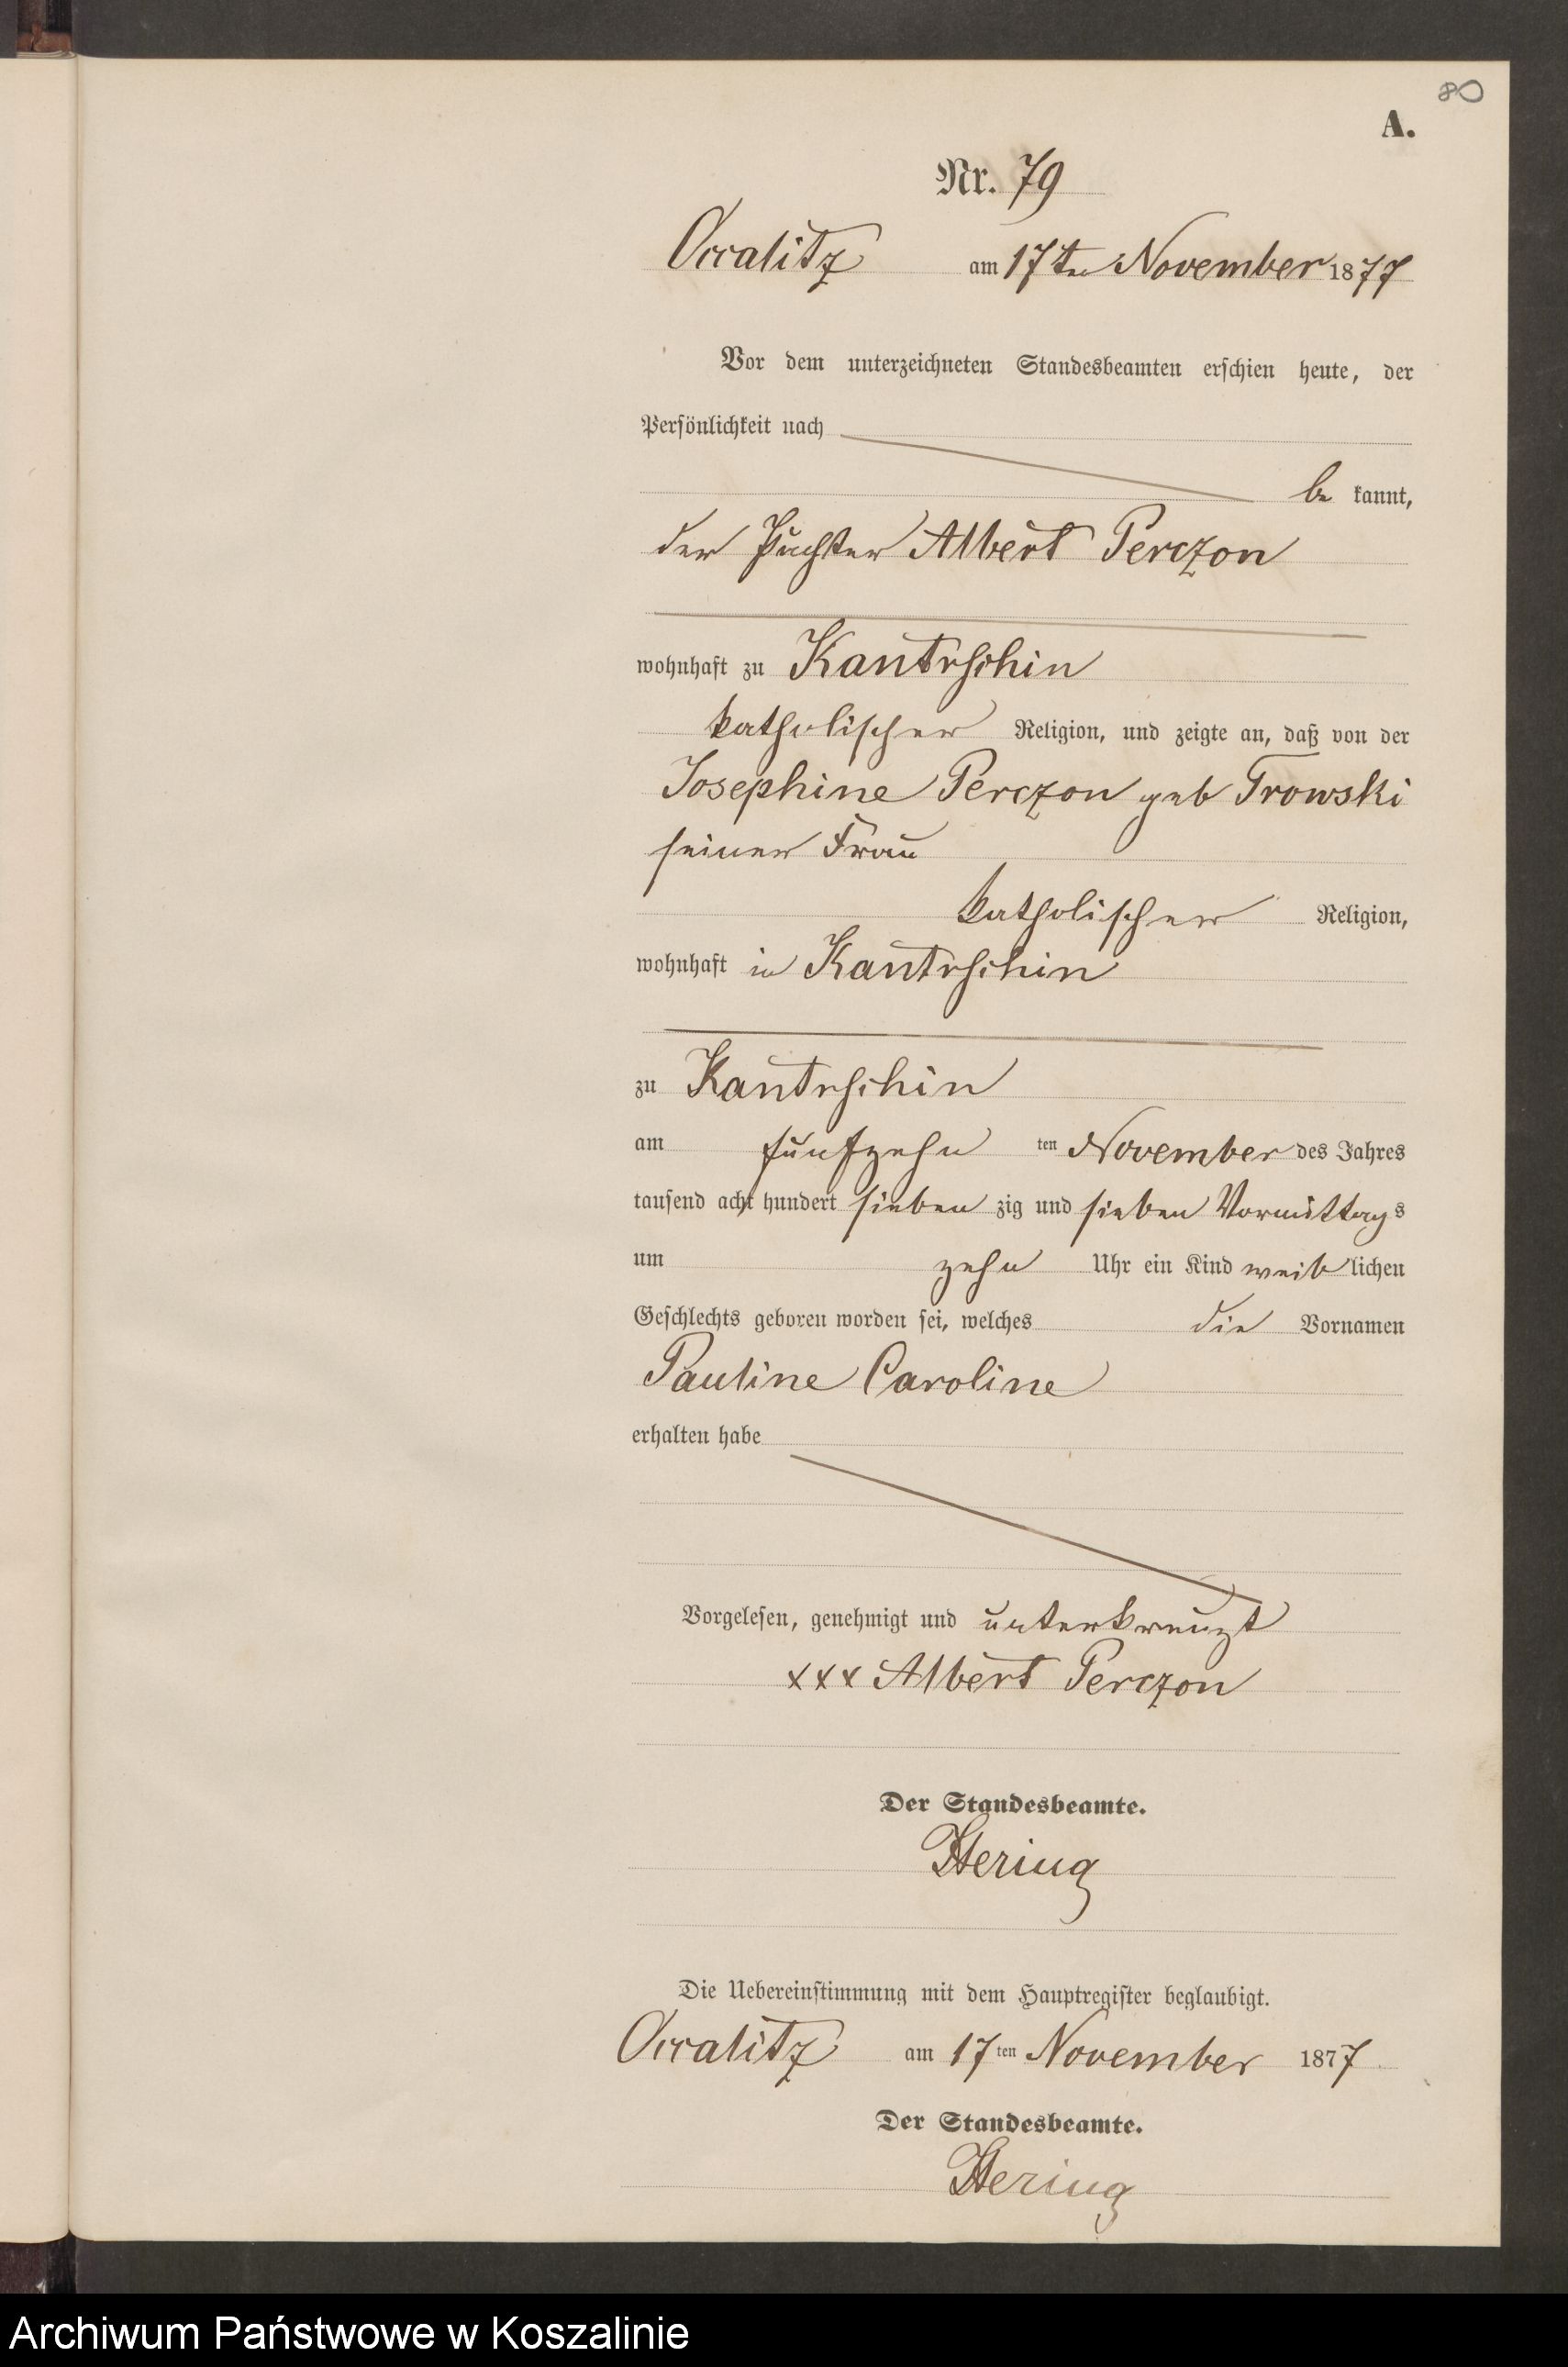 80
A.
Nr. 79
Occalitz am 17ten November 1877
Vor dem unterzeichneten Standesbeamten erschien heute, der
Persönlichkeit nach
be kannt,
der Pächter Albert Perczon
wohnhaft zu Kantrschin
katholischer Religion, und zeigte an, daß von der
Josephine Perczon geb Trowski
seiner Frau
katholischer Religion,
wohnhaft in Kantrschin
zu Kantrschin
am fünfzehn ten November des Jahres
tausend acht hundert sieben zig und sieben Vormittags
um zehn Uhr ein Kind weib lichen
Geschlechts geboren worden sei, welches die Vornamen
Pauline Caroline
erhalten habe
Vorgelesen, genehmigt und unterkreuzt
xxx Albert Perczon
Der Standesbeamte.
Hering
Die Uebereinstimmung mit dem Hauptregister beglaubigt.
Occalitz am 17ten November 1877
Der Standesbeamte.
Hering
Archiwum Państwowe w Koszalinie